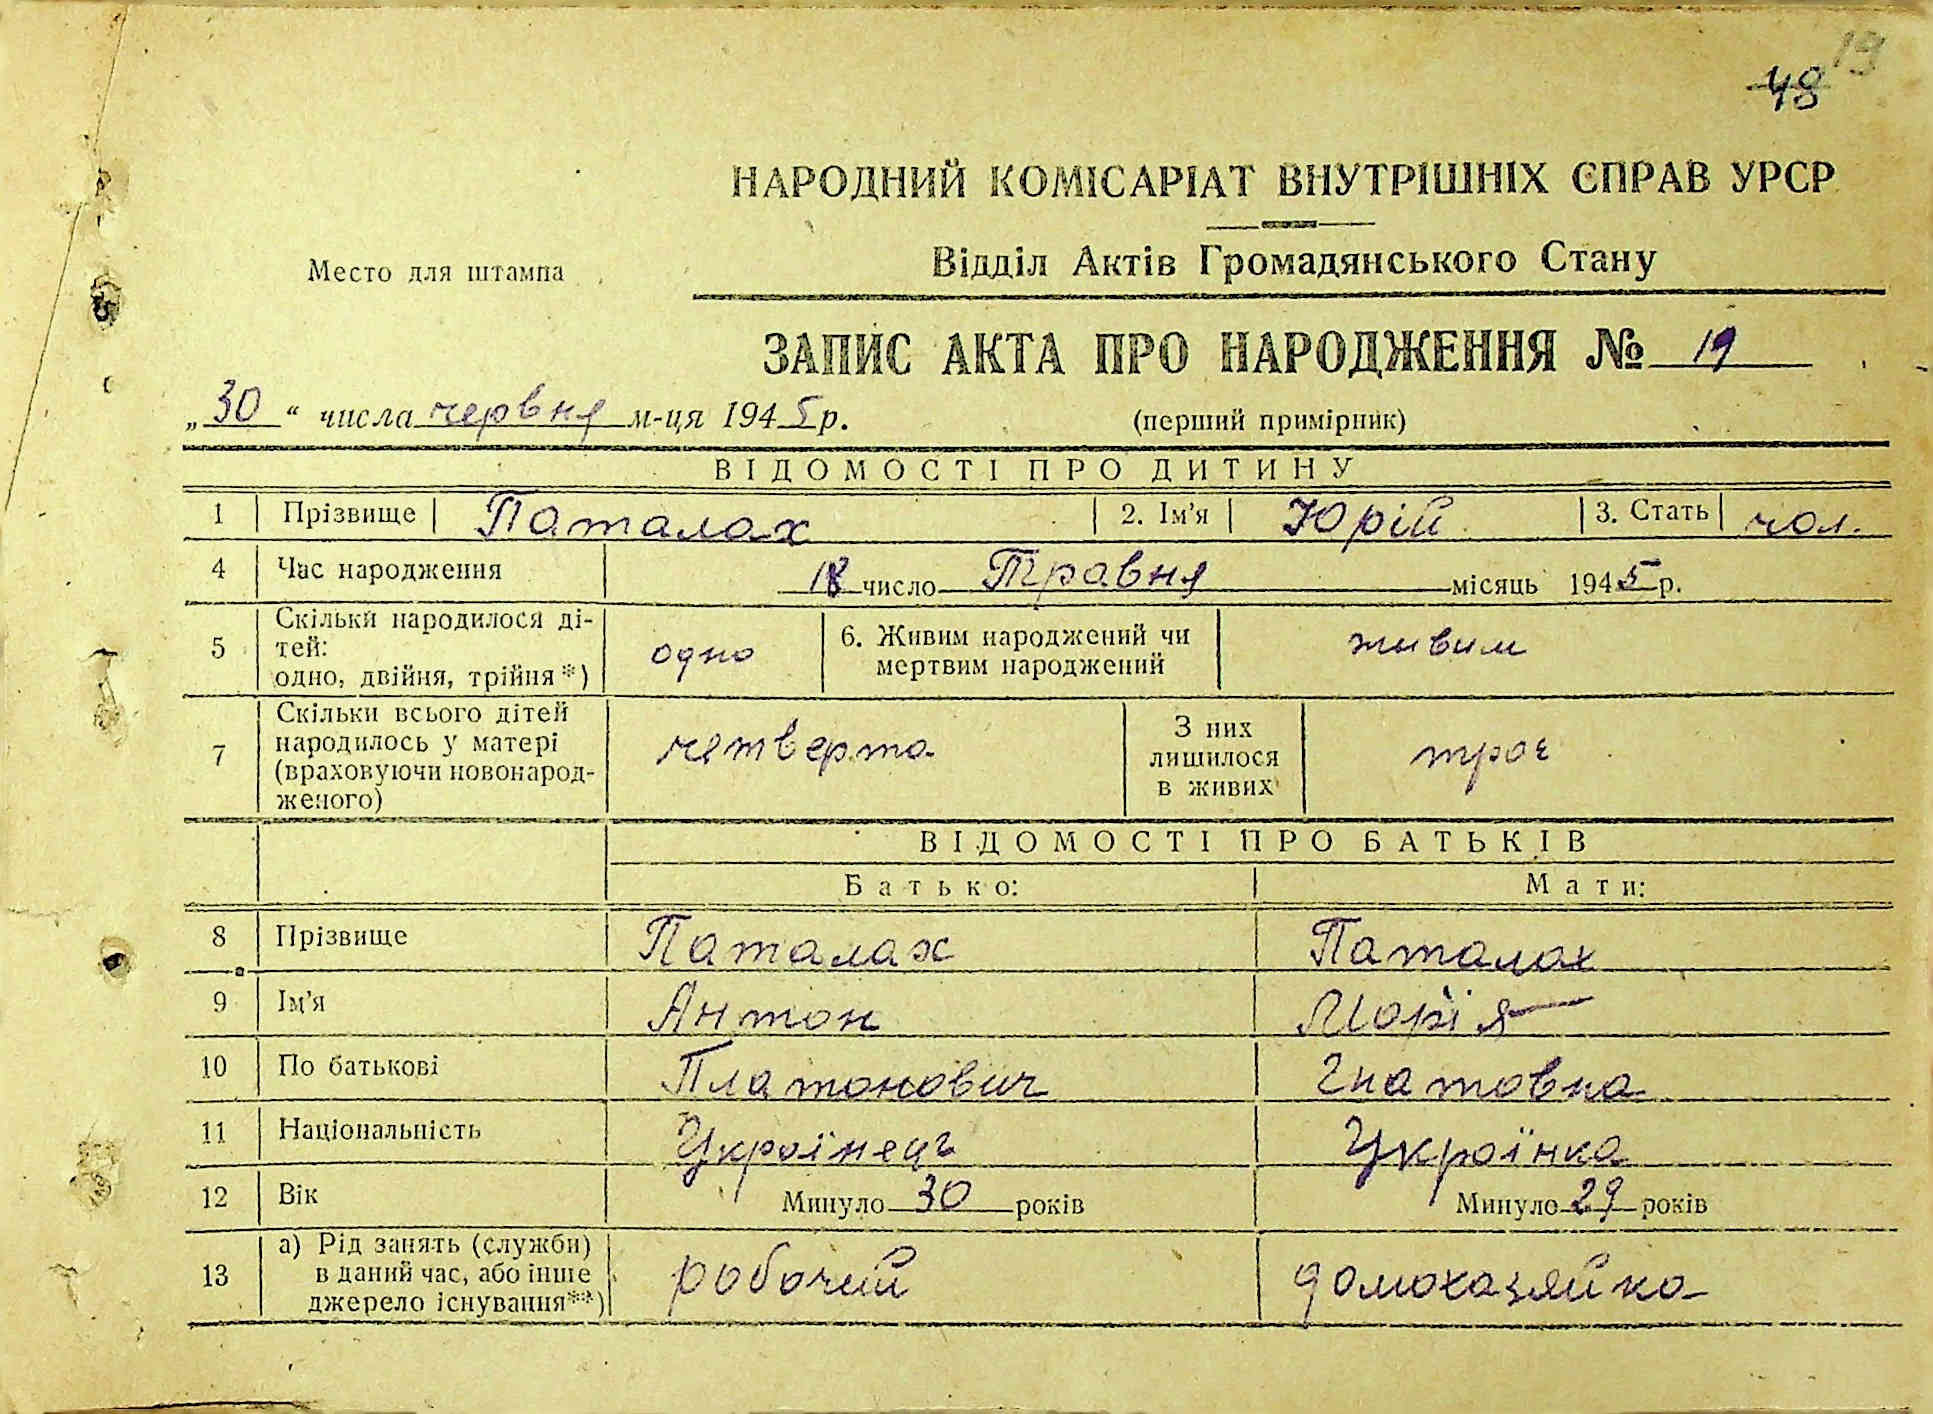 19
48
НАРОДНИЙ КОМІСАРІАТ ВНУТРІШНІХ СПРАВ УРСР
Место для штампа
Відділ Актів Громадянського Стану
ЗАПИС АКТА ПРО НАРОДЖЕННЯ № 19
„30“ числа червня м-ця 1945 р.
(перший примірник)
ВІДОМОСТІ ПРО ДИТИНУ
1 Прізвище Паталах 2. Ім'я Юрій 3. Стать чол.
4 Час народження 18 число Травня місяць 1945 р.
5 Скільки народилося ді-
тей:
одно, двійня, трійня*) одно 6. Живим народжений чи
мертвим народжений живим
7 Скільки всього дітей
народилось у матері
(враховуючи новонарод-
женого) четверто З них
лишилося
в живих троє
ВІДОМОСТІ ПРО БАТЬКІВ
Батько: Мати:
8 Прізвище Паталах Паталах
9 Ім'я Антон Марія
10 По батькові Платонович Гнатовна
11 Національність Українець Українка
12 Вік Минуло 30 років Минуло 29 років
13 а) Рід занять (служби)
в даний час, або інше
джерело існування**) робочий домохазяйка